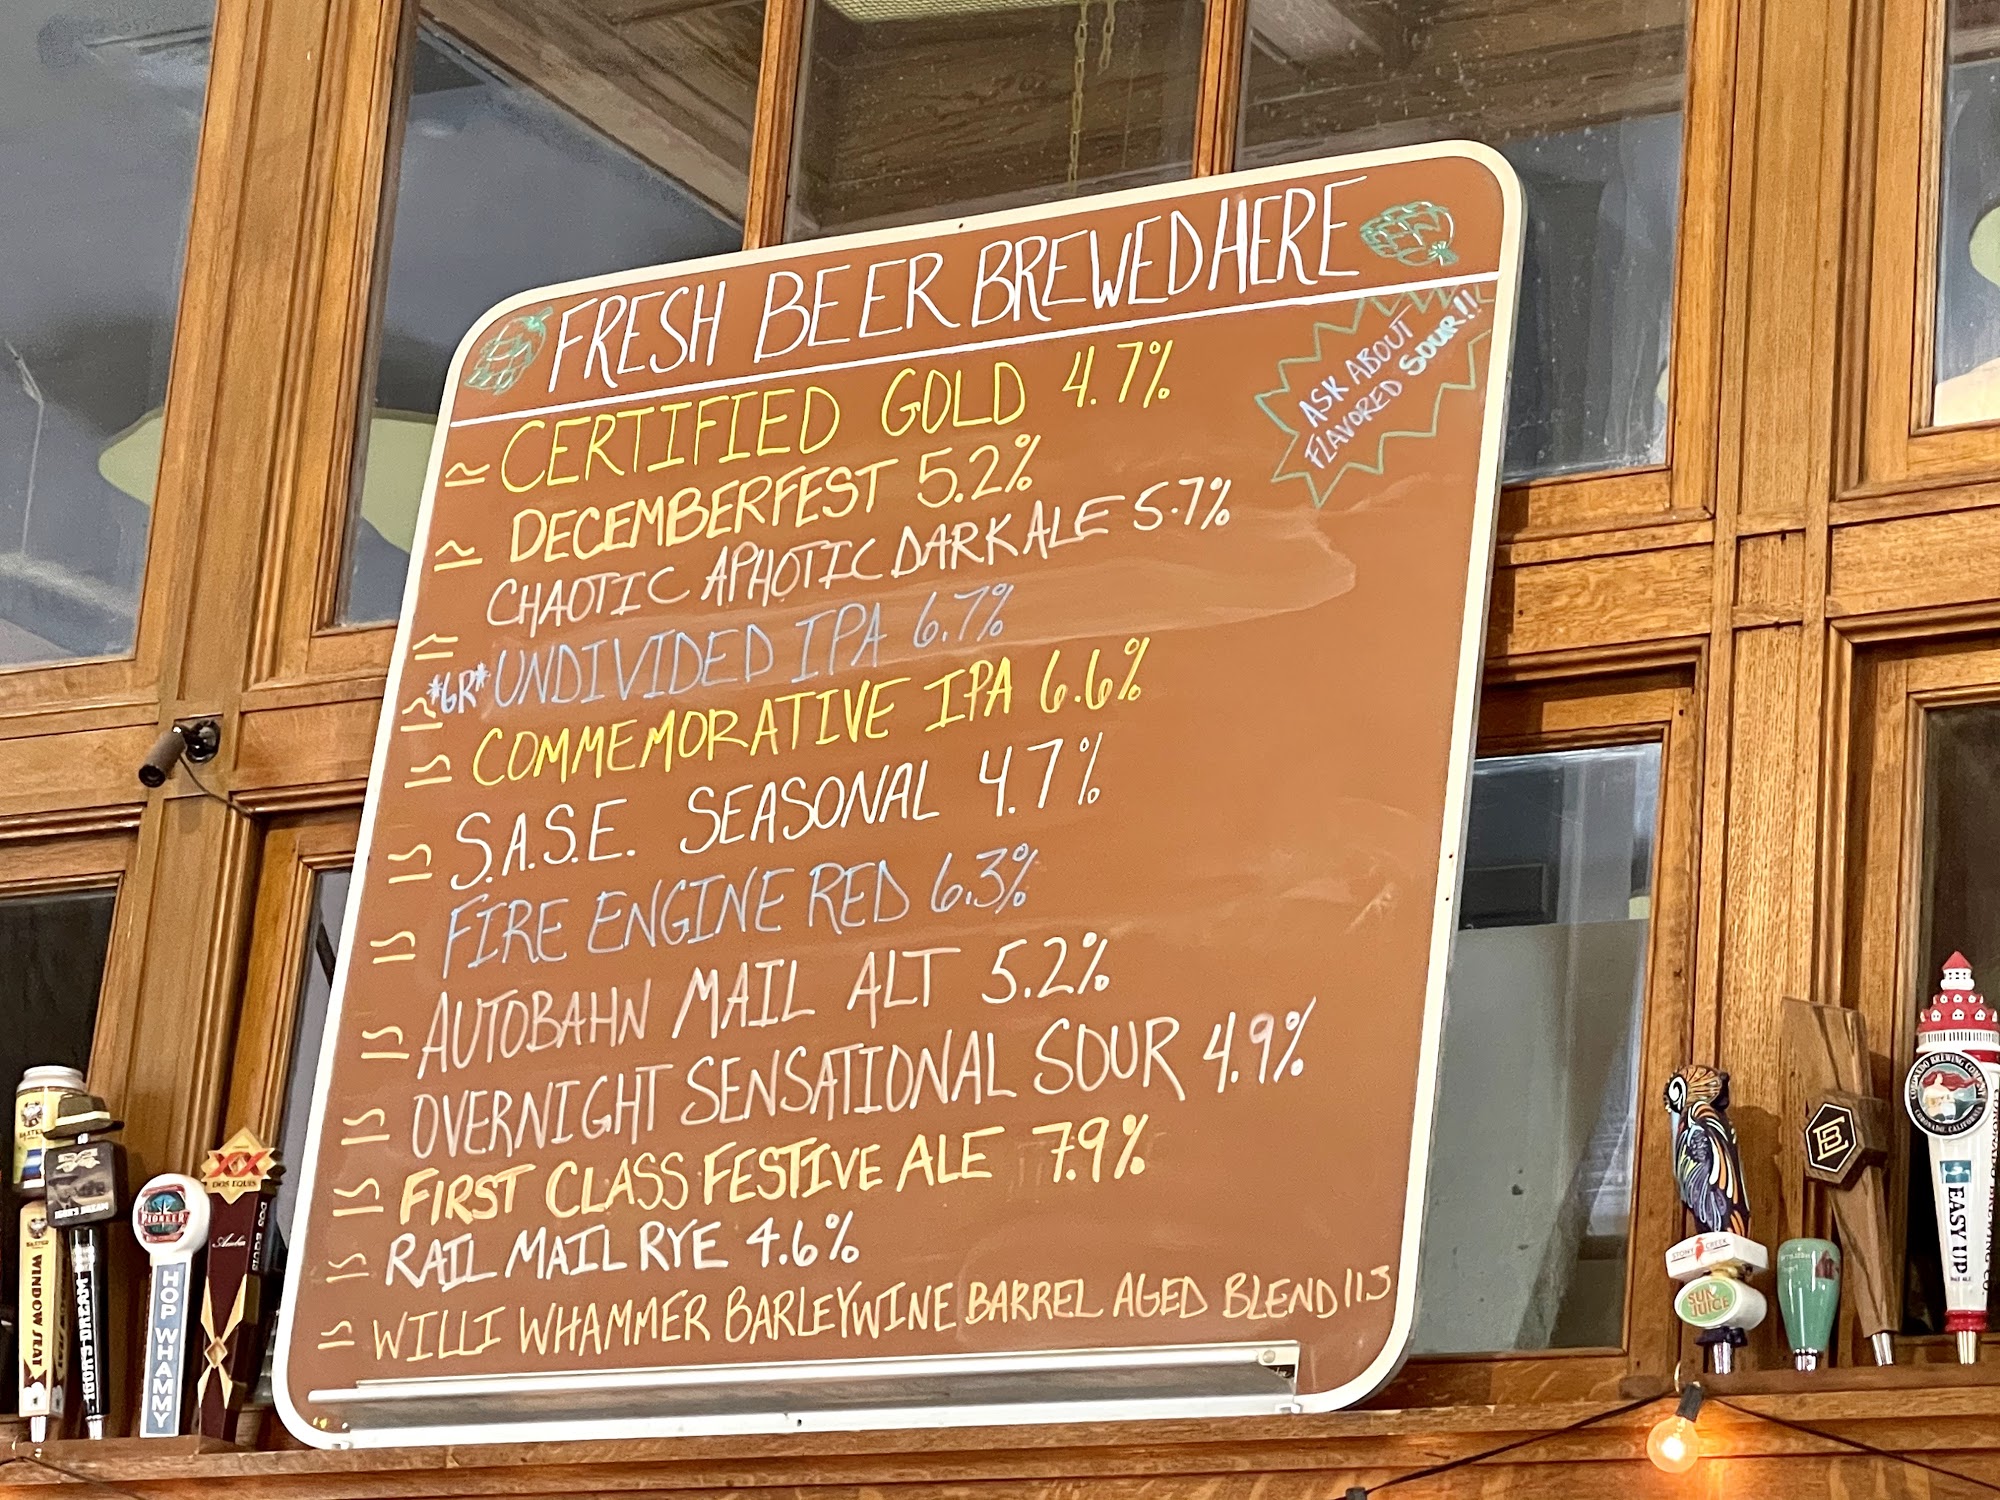 FRESH BEER BREWED HERE
ASK ABOUT
FLAVORED SOUR!!
≈ CERTIFIED GOLD 4.7%
≈ DECEMBERFEST 5.2%
≈ CHAOTIC APHOTIC DARK ALE 5.7%
≈ *GR* UNDIVIDED IPA 6.7%
≈ COMMEMORATIVE IPA 6.6%
≈ S.A.S.E. SEASONAL 4.7%
≈ FIRE ENGINE RED 6.3%
≈ AUTOBAHN MAIL ALT 5.2%
≈ OVERNIGHT SENSATIONAL SOUR 4.9%
≈ FIRST CLASS FESTIVE ALE 7.9%
≈ RAIL MAIL RYE 4.6%
≈ WILLI WHAMMER BARLEYWINE BARREL AGED BLEND 11.3
BAXTER
WINDOW SEAT
PIONEER
HOP WHAMMY
XX
DOS EQUIS
Amber
DOS EQUIS
STONY CREEK
SUN
JUICE
CORONADO BREWING COMPANY
CORONADO, CALIFORNIA
EASY UP
PALE ALE